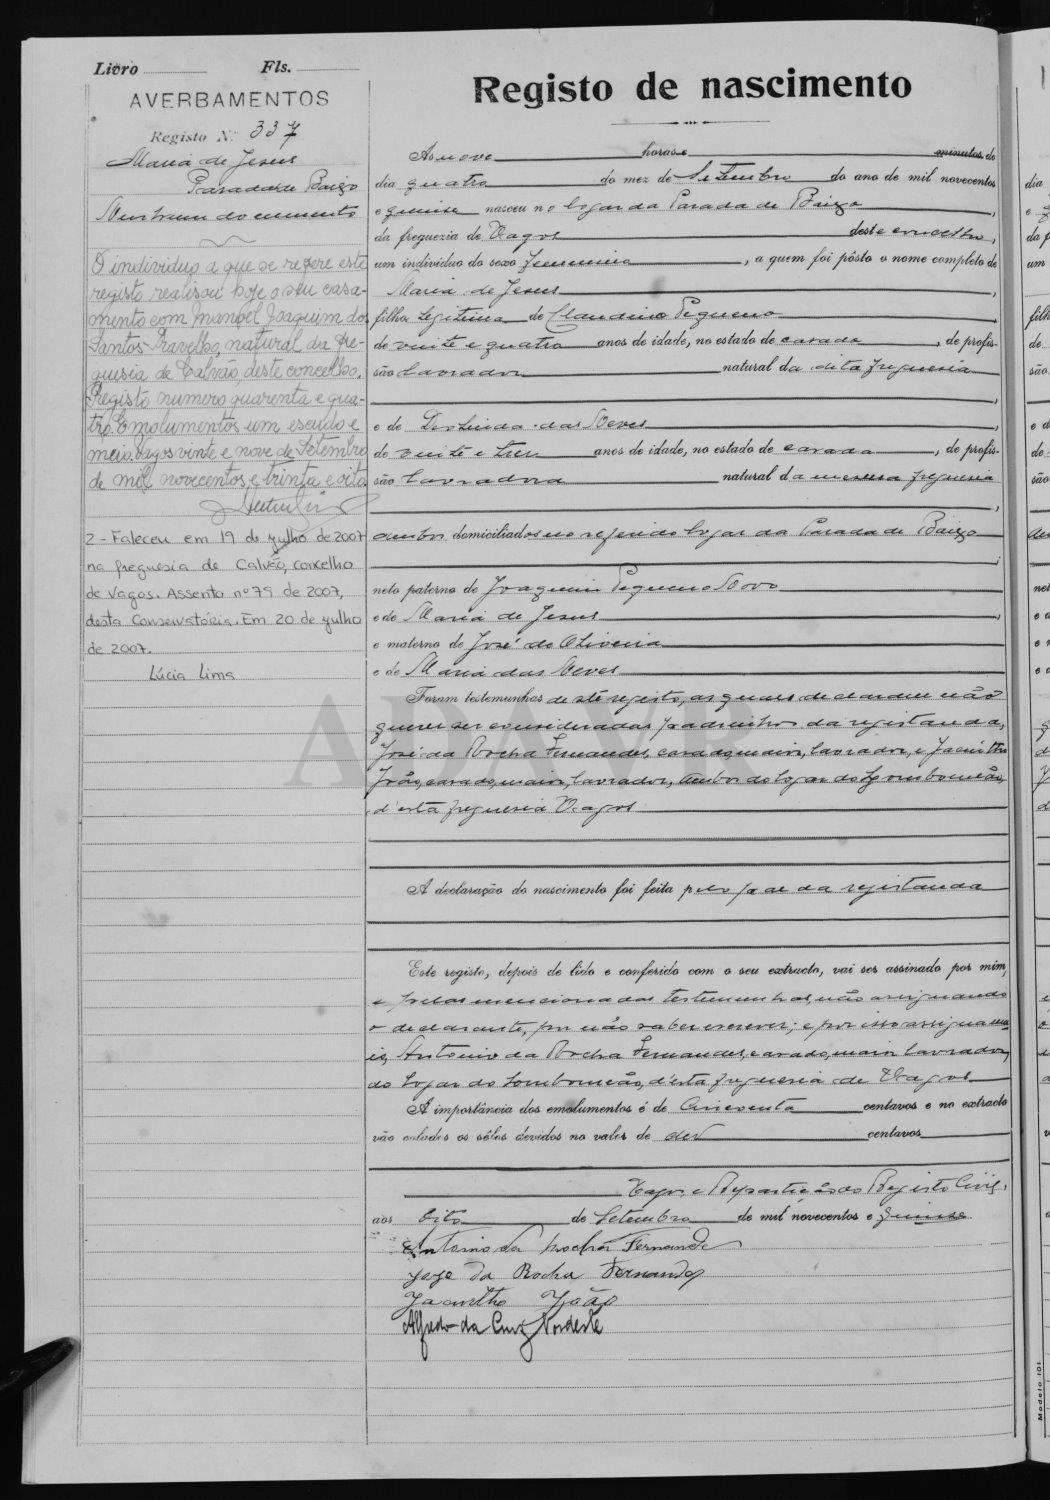 Livro Fls.
AVERBAMENTOS
Registo N.º 337
Maria de Jesus
Parada de Baixo
Nenhum documento
O individuo a que se refere este
registo realisou hoje o seu casa-
mento com Manoel Joaquim dos
Santos Travelho, natural da fre-
guesia de Calvão, deste concelho.
Registo numero quarenta e qua-
tro. Emolumentos um escudo e
meio. Vagos vinte e nove de Setembro
de mil novecentos e trinta e oito
2 - Faleceu em 19 de julho de 2007
na freguesia de Calvão, concelho
de Vagos. Assento nº 79 de 2007,
desta Conservatória. Em 20 de julho
de 2007.
Lúcia Lima
Registo de nascimento
Ás nove horas e minutos do
dia quatro do mez de Setembro do ano de mil novecentos
e quinse nasceu no logar da Parada de Baixo,
da freguezia de Vagos deste concelho,
um individuo do sexo femenino, a quem foi pôsto o nome completo de
Maria de Jesus,
filha legitima de Claudino Pequeno
de vinte e quatro anos de idade, no estado de casado, de profis-
são lavrador natural da dita freguesia
,
e de das Neves
de vinte e tres anos de idade, no estado de casada, de profis-
são lavradora natural da mesma freguesia
,
ambos domiciliados no referido logar da Parada de Baixo
;
neto paterno de Joaquim Pequeno Novo
e de Maria de Jesus,
e materno de José de Oliveira
e de Maria das Neves
Foram testemunhas deste registo, as quaes declaram não
querer ser consideradas padrinhos da registanda,
José da Rocha Fernandes, casado, maior, lavrador, e Jacintho
João, casado, maior, lavrador, ambos do logar do Lombomeão,
d'esta freguesia Vagos
A declaração do nascimento foi feita pelo pae da registanda
Este registo, depois de lido e conferido com o seu extracto, vai ser assinado por mim,
e pelas mencionadas testemunhas, não assignando
o declarante, por não saber escrever; e por isso assigna
Antonio da Rocha Fernandes, casado, maior lavrador,
do logar do Lombomeão, d'esta freguesia de Vagos
A importância dos emolumentos é de cincoenta centavos e no extracto
vão colados os sêlos devidos no valor de dez centavos
Vagos e Repartição do Registo Civil,
aos oito de Setembro de mil novecentos e quinse
Antonio da Rocha Fernandes
José da Rocha Fernandes
Jacintho João
Alfredo da Cruz Nordeste
Modelo 101